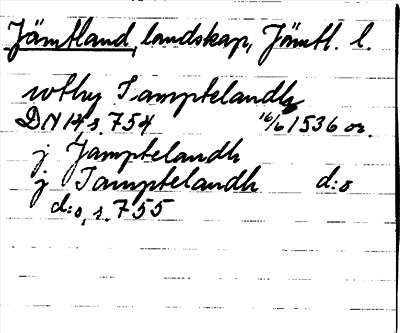 Jämtland, landskap, Jämtl. l.
wthy Iamptelandh
DN 14 s. 754 16/6 1536 or.
j Jamptelandh
j Iamptelandh d:o
d:o, s. 755